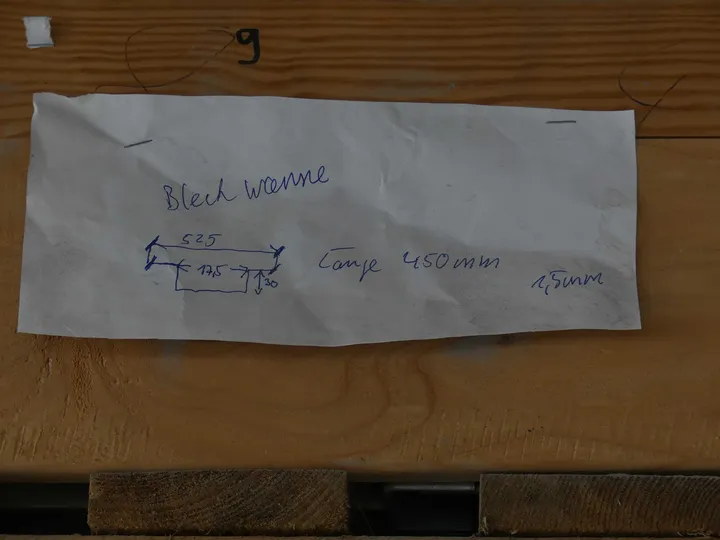 9
Blech wanne
525
17,5
30
Länge 450mm
1,5mm